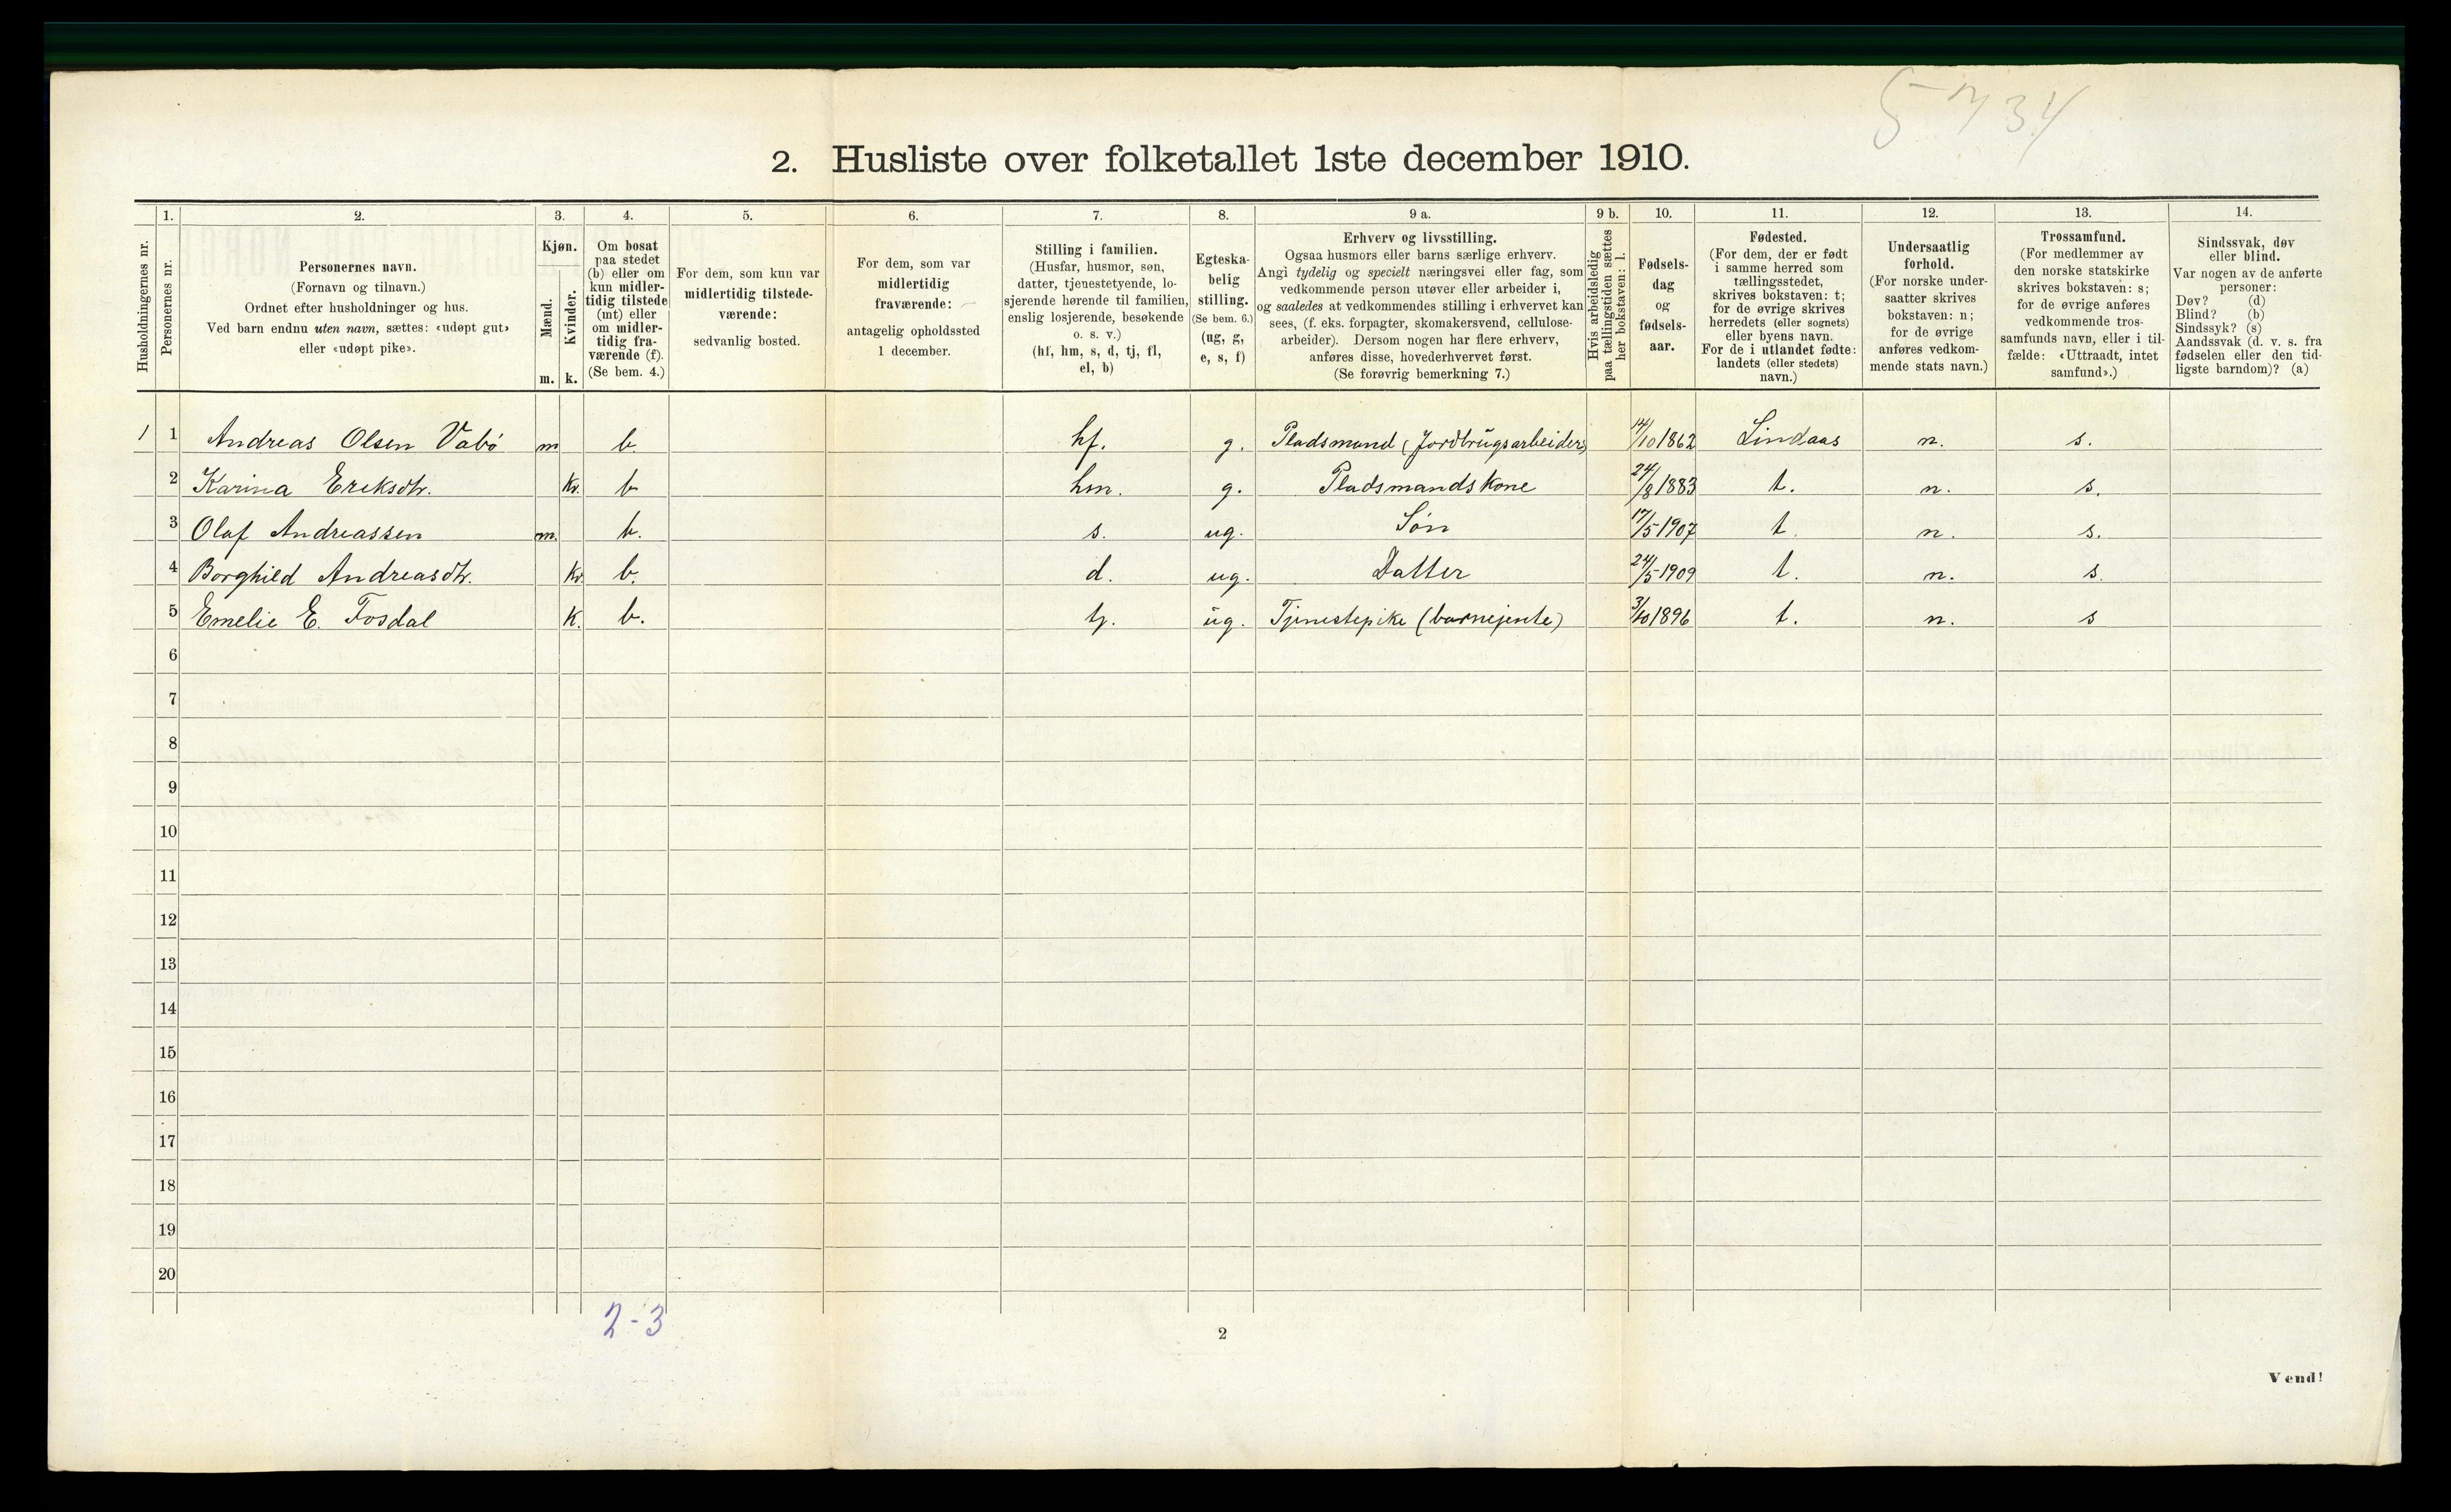 5734
2. Husliste over folketallet 1ste december 1910.
1. 2. 3. 4. 5. 6. 7. 8. 9 a. 9 b. 10. 11. 12. 13. 14.
Husholdningernes nr.
Personernes nr.
Personernes navn.
(Fornavn og tilnavn.)
Ordnet efter husholdninger og hus.
Ved barn endnu uten navn, sættes: «udøpt gut»
eller «udøpt pike».
Kjøn.
Mænd.
Kvinder.
m. k.
Om bosat
paa stedet
(b) eller om
kun midler-
tidig tilstede
(mt) eller
om midler-
tidig fra-
værende (f).
(Se bem. 4.)
For dem, som kun var
midlertidig tilstede-
værende:
sedvanlig bosted.
For dem, som var
midlertidig
fraværende:
antagelig opholdssted
1 december.
Stilling i familien.
(Husfar, husmor, søn,
datter, tjenestetyende, lo-
sjerende hørende til familien,
enslig losjerende, besøkende
o. s. v.)
(hf, hm, s, d, tj, fl,
el, b)
Egteska-
belig
stilling.
(Se bem. 6.)
(ug, g,
e, s, f)
Erhverv og livsstilling.
Ogsaa husmors eller barns særlige erhverv.
Angi tydelig og specielt næringsvei eller fag, som
vedkommende person utøver eller arbeider i,
og saaledes at vedkommendes stilling i erhvervet kan
sees, (f. eks. forpagter, skomakersvend, cellulose-
arbeider). Dersom nogen har flere erhverv,
anføres disse, hovederhvervet først.
(Se forøvrig bemerkning 7.)
Hvis arbeidsledig
paa tællingstiden sættes
her bokstaven: l.
Fødsels-
dag
og
fødsels-
aar.
Fødested.
(For dem, der er født
i samme herred som
tællingsstedet,
skrives bokstaven: t;
for de øvrige skrives
herredets (eller sognets)
eller byens navn.
For de i utlandet fødte:
landets (eller stedets)
navn.)
Undersaatlig
forhold.
(For norske under-
saatter skrives
bokstaven: n;
for de øvrige
anføres vedkom-
mende stats navn.)
Trossamfund.
(For medlemmer av
den norske statskirke
skrives bokstaven: s;
for de øvrige anføres
vedkommende tros-
samfunds navn, eller i til-
fælde: «Uttraadt, intet
samfund».)
Sindssvak, døv
eller blind.
Var nogen av de anførte
personer:
Døv? (d)
Blind? (b)
Sindssyk? (s)
Aandssvak (d. v. s. fra
fødselen eller den tid-
ligste barndom)? (a)
1 1 Andreas Olsen Vabø m b. hf. g. Pladsmand (Jordbrugsarbeider) 14/10 1862 Lindaas n. s.
2 Karina Eriksdtr. kv. b hm. g. Pladsmandskone 24/8 1883 t. n. s.
3 Olaf Andreassen m. b. s. ug. Søn 17/5 1907 t. n. s.
4 Borghild Andreasdtr. kv. b. d. ug. Datter 24/5 1909 t. n. s.
5 Emelie E. Fosdal k. b. tj. ug. Tjenestepike (barnejente) 3/10 1896 t. n. s
6
7
8
9
10
11
12
13
14
15
16
17
18
19
20
2-3
2
Vend!